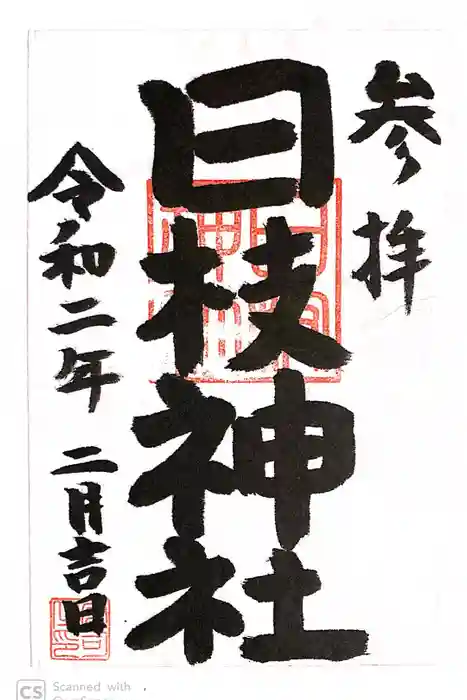 参拝
日枝神社
令和二年 二月吉日
CS Scanned with